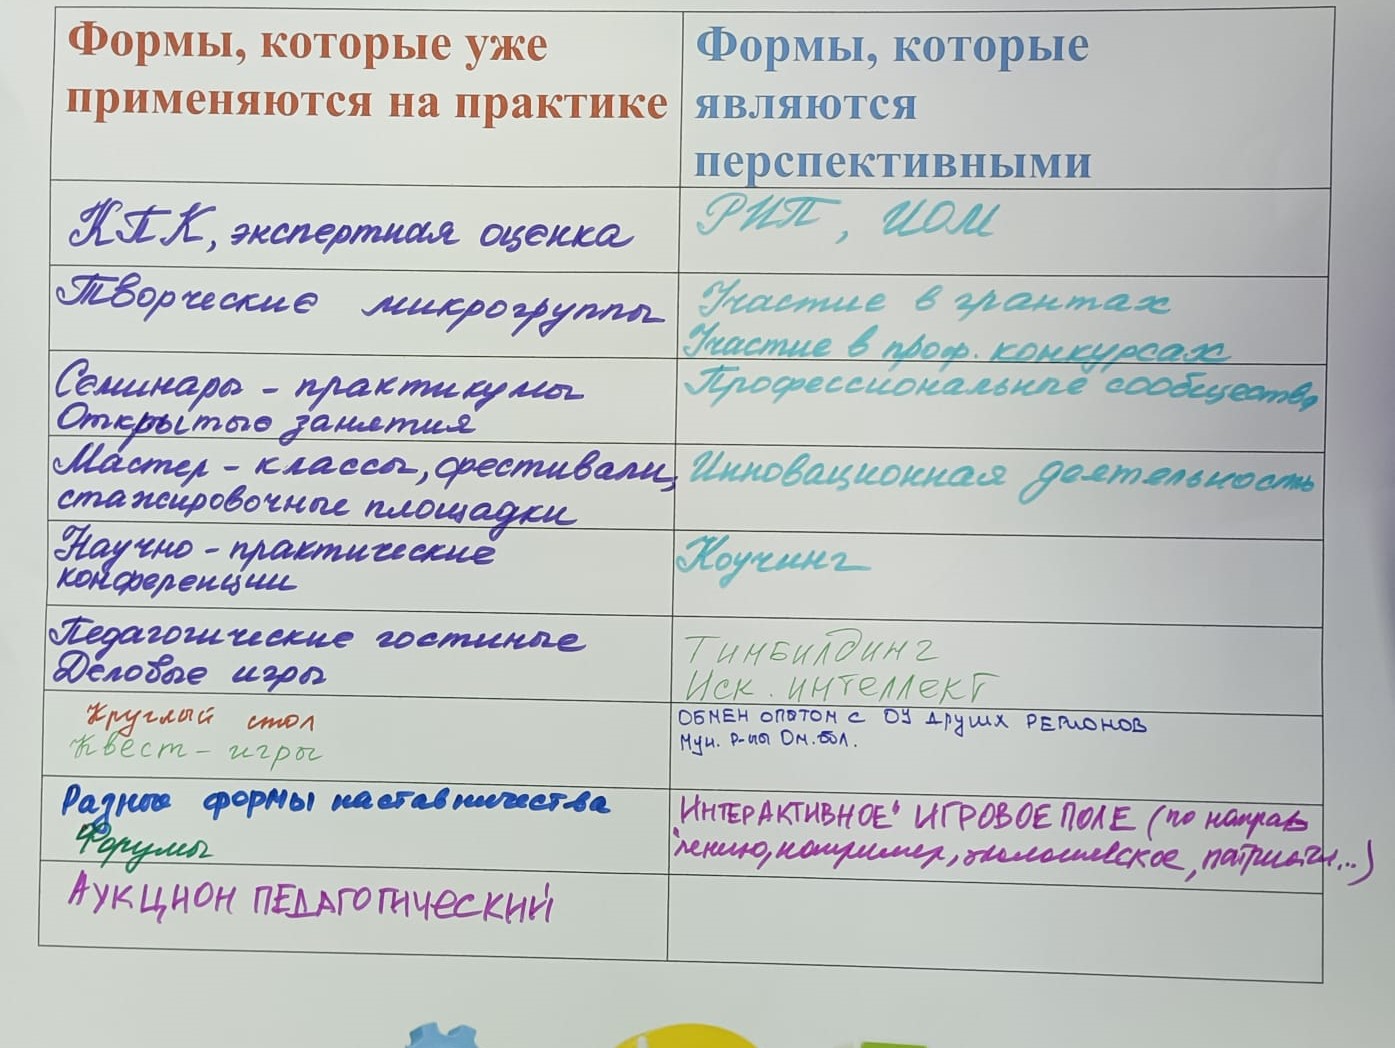 Формы, которые уже
применяются на практике
Формы, которые
являются
перспективными
КПК, экспертная оценка
РИП, ИОМ
Творческие микрогруппы
Участие в грантах
Участие в проф. конкурсах
Семинары - практикумы
Открытые занятия
Профессиональные сообщества
Мастер - классы, фестивали,
стажировочные площадки
Инновационная деятельность
Научно - практические
конференции
Коучинг
Педагогические гостиные
Деловые игры
Тимбилдинг
Иск. интеллект
Круглый стол
Квест - игры
ОБМЕН ОПЫТОМ С ОУ ДРУГИХ РЕГИОНОВ
Мун. р-ны Ом. обл.
Разные формы наставничества
Форумы
ИНТЕРАКТИВНОЕ ИГРОВОЕ ПОЛЕ (по направ
лению, например, экологическое, патриотич...)
АУКЦИОН ПЕДАГОГИЧЕСКИЙ